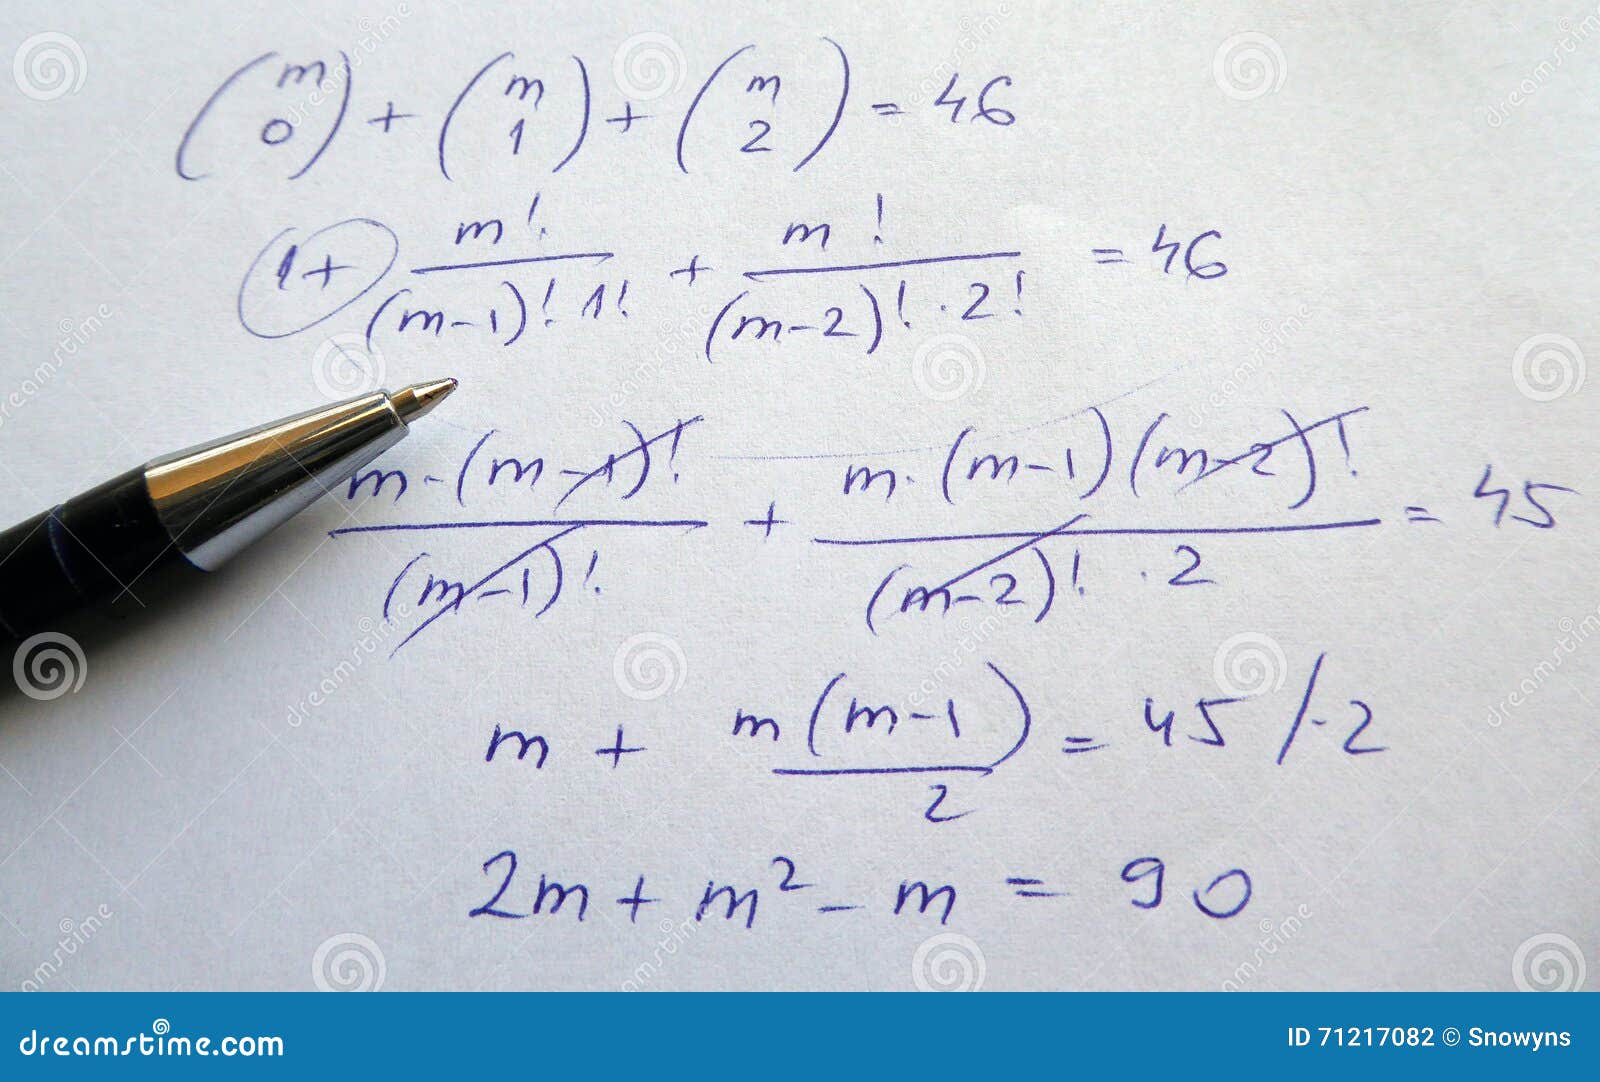 (m 0) + (m 1) + (m 2) = 46
1 + m! / (m-1)! · 1! + m! / (m-2)! · 2! = 46
m · (m-1)! / (m-1)! + m · (m-1)(m-2)! / (m-2)! · 2 = 45
m + m(m-1) / 2 = 45 /·2
2m + m² - m = 90
dreamstime.com
ID 71217082 © Snowyns